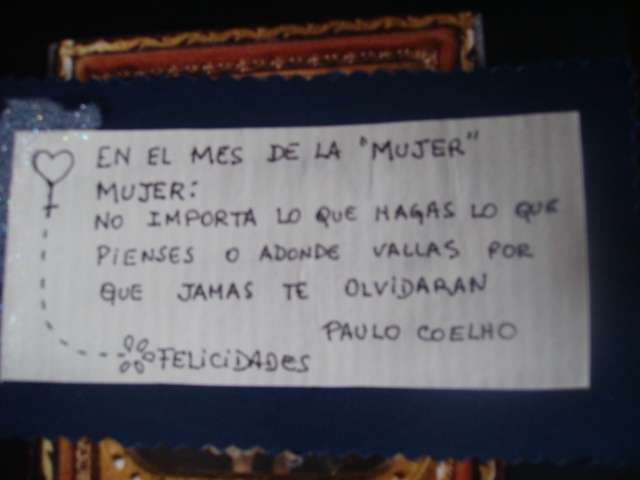 EN EL MES DE LA "MUJER"
MUJER:
NO IMPORTA LO QUE HAGAS LO QUE
PIENSES O ADONDE VALLAS POR
QUE JAMAS TE OLVIDARAN
PAULO COELHO
FELICIDADES